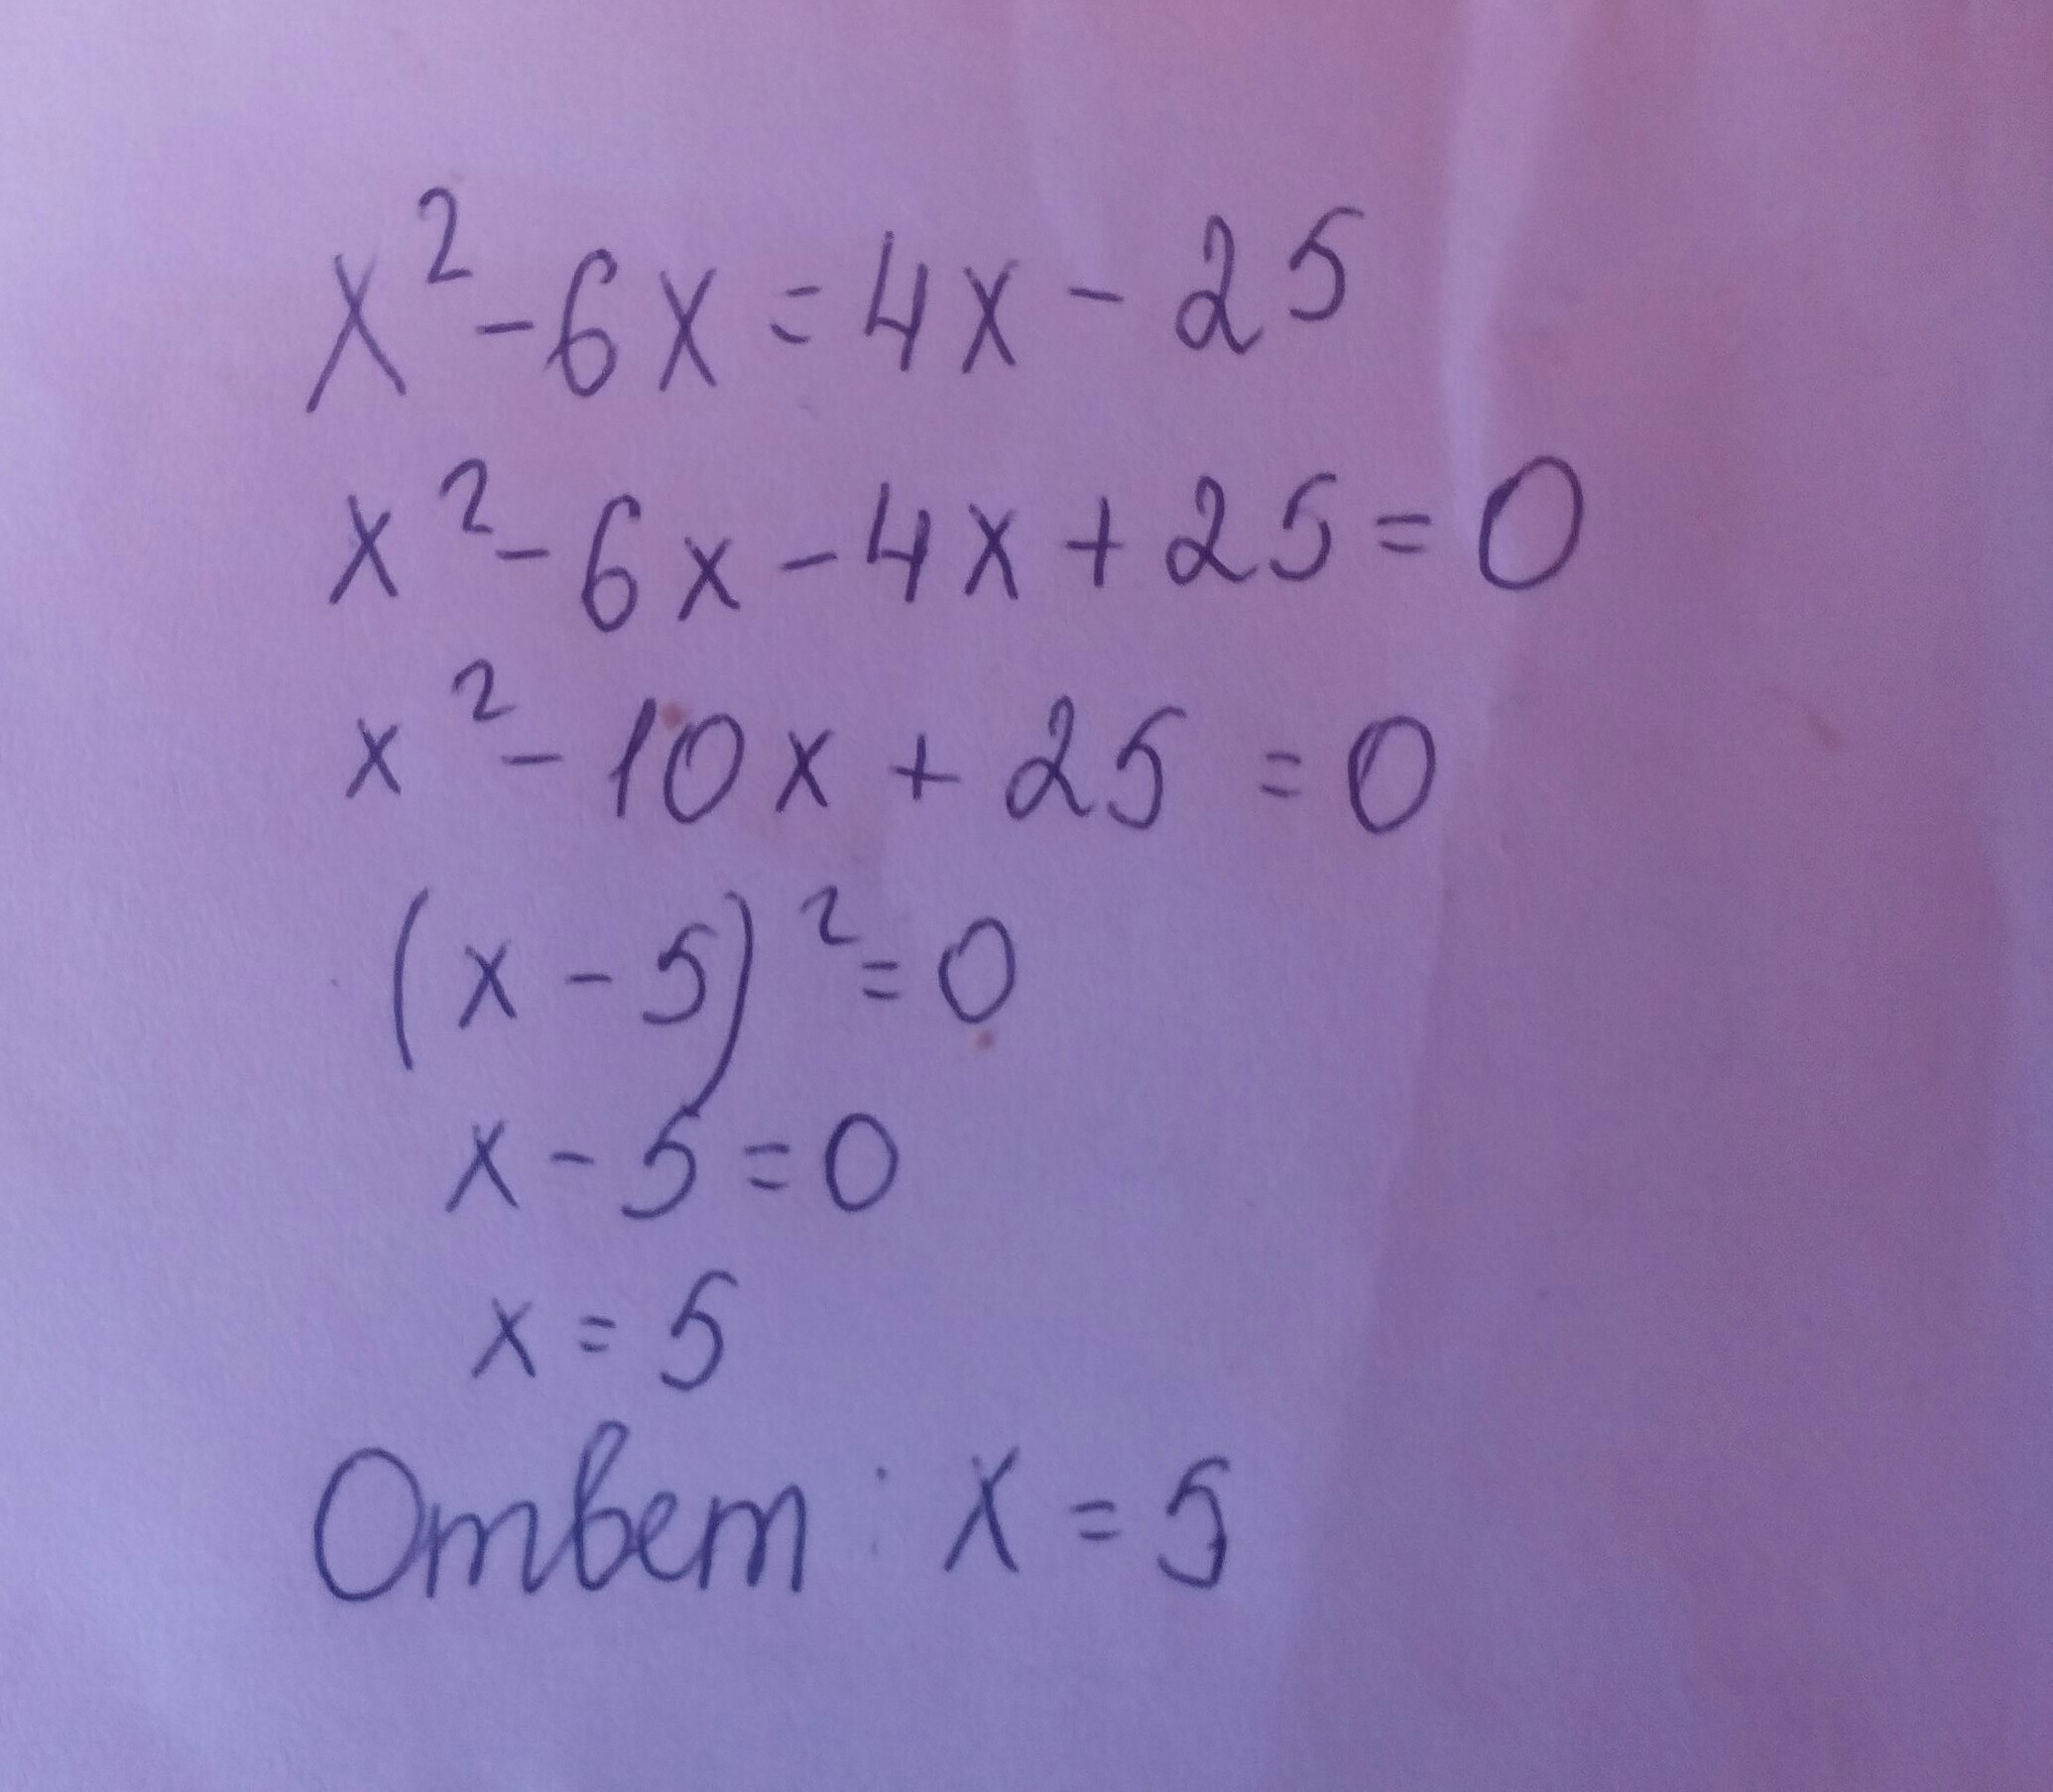 x² - 6x = 4x - 25
x² - 6x - 4x + 25 = 0
x² - 10x + 25 = 0
(x - 5)² = 0
x - 5 = 0
x = 5
Ответ: x = 5